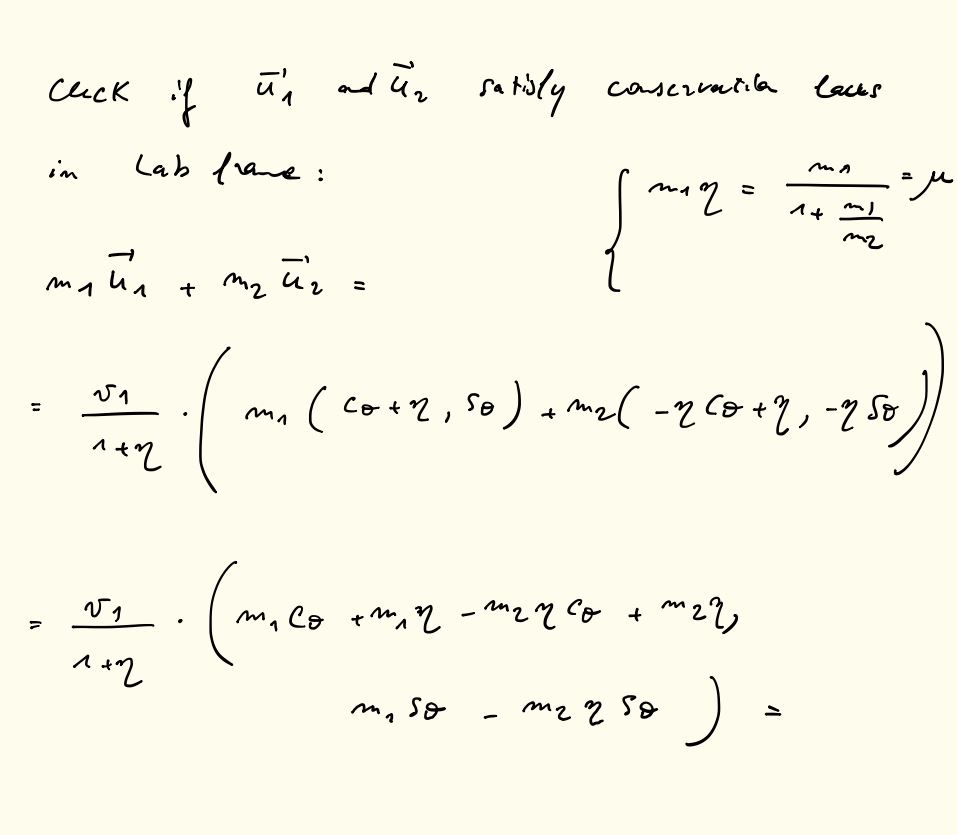 Check if u⃗₁ and u⃗₂ satisfy conservation laws
in Lab frame :
{ m₁η = m₁ / (1 + m₁/m₂) = μ
m₁ u⃗₁ + m₂ u⃗₂ =
= v₁/(1+η) · ( m₁ ( cθ + η , sθ ) + m₂ ( -η cθ + η , -η sθ ) )
= v₁/(1+η) · ( m₁ cθ + m₁ η - m₂ η cθ + m₂ η,
m₁ sθ - m₂ η sθ ) =